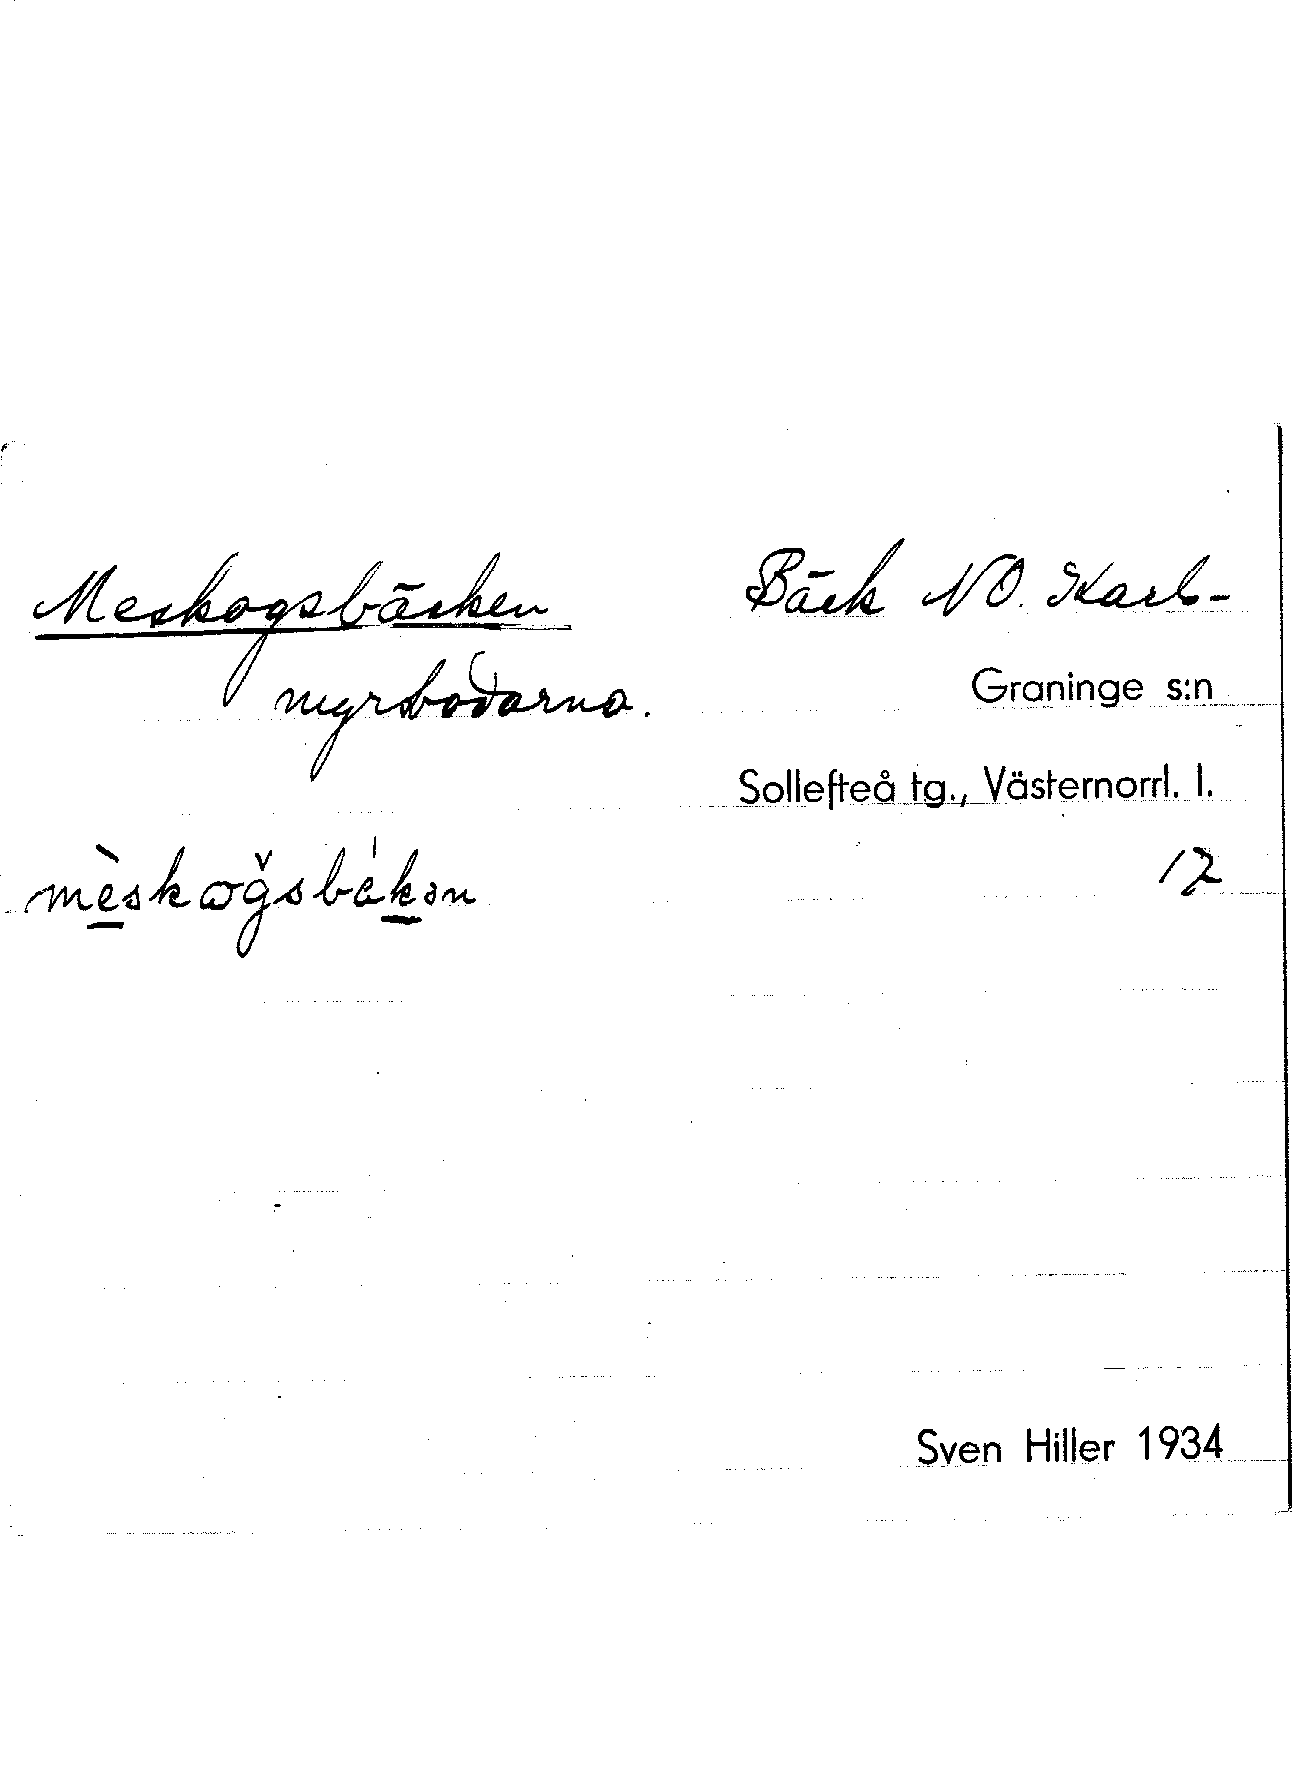 Meskogsbäcken
Bäck NO. Karls-
myrbodarna.
Graninge s:n
Sollefteå tg., Västernorrl. l.
12
Sven Hiller 1934